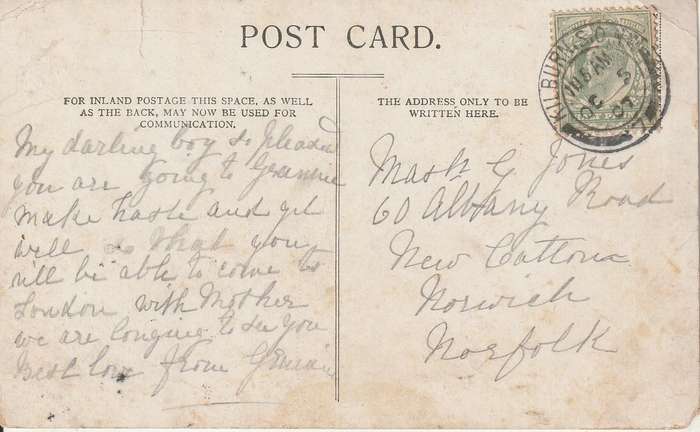 POST CARD.
FOR INLAND POSTAGE THIS SPACE, AS WELL
AS THE BACK, MAY NOW BE USED FOR
COMMUNICATION.
THE ADDRESS ONLY TO BE
WRITTEN HERE.
KILBURN.S.O. N.W.
OC 07
My darling boy so pleased
you are going to Grannie
make haste and get
well so that you
will be able to come to
London with Mother
we are longing to see you
Best love from
Mastr G Jones
60 Albany Road
New Cattone
Norwich
Norfolk